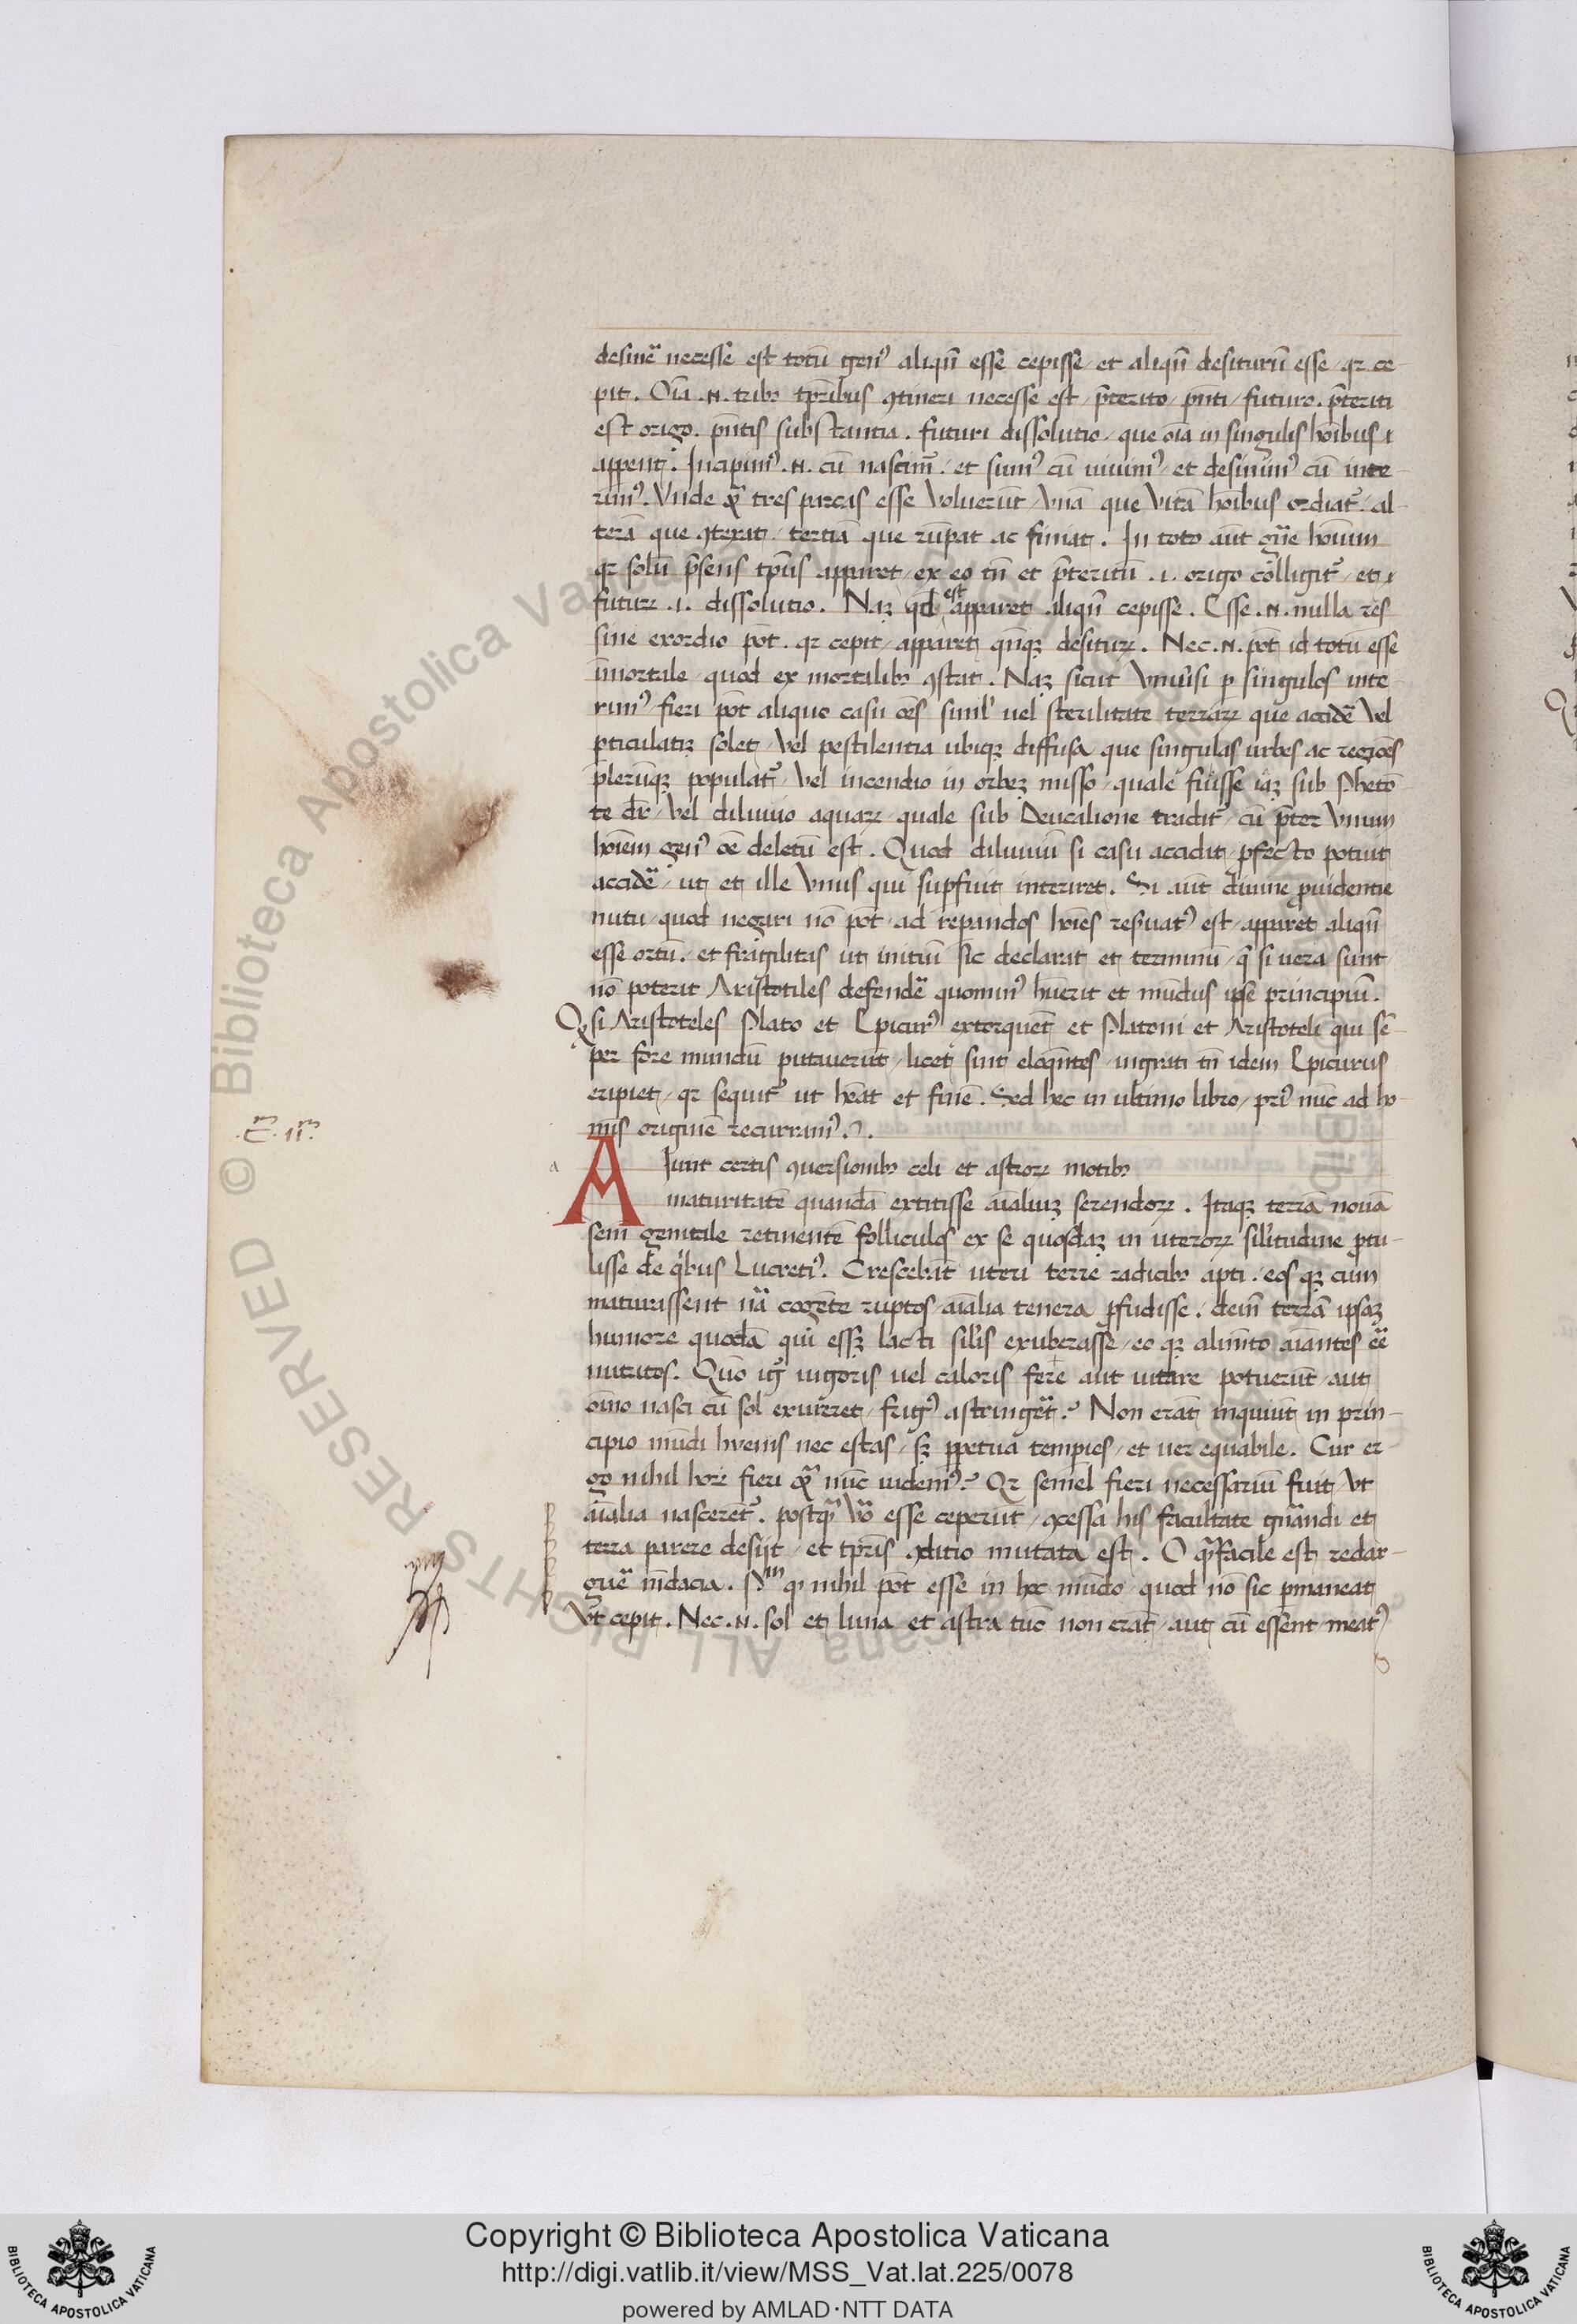 desinē necesse est totū genꝰ aliqn̄ esse cepisse / et aliqn̄ desiturū esse / qꝛ ce-
pit. Oīa .N. tribꝫ tp̄ribus ꝯtineri necesse est / p̄terito / pn̄ti / futuro. p̄teriti
est origo. pn̄tis substantia. futuri dissolutio / que oīa in singulis hoībus
apparent. Incipimꝰ .N. cū nascim̄. et sumꝰ cū uiuimꝰ / et desinimꝰ cū inte-
rimꝰ. Vnde tres parcas esse voluerūt / vnā que vitā hoībus ordiat̄ / al-
terā que ꝯtexat / tertiā que rūpat ac finiat. In toto aūt gn̄e hoīum
qꝛ solū p̄sens tp̄us apparet / ex eo tn̄ et p̄teritū .i. origo colligit̄ / et
futuꝝ .i. dissolutio. Naꝫ qd̄ est apparet aliqn̄ cepisse. Esse .N. nulla res
sine exordio pōt. qꝛ cepit / apparet qn̄qꝫ desituꝝ. Nec .N. pōt id totū esse
īmortale / quod ex mortalibꝫ ꝯstat. Naꝫ sicut vniūsi p singulos inte-
rimꝰ fieri pōt aliquo casu oēs simul uel sterilitate terraꝝ que accidē vel
ꝑticulatiꝫ solet / vel pestilentia ubiqꝫ diffusa que singulas urbes ac regiōes
plerūqꝫ populat̄ / vel incendio in orbeꝫ misso / quale fuisse iaꝫ sub Phetō-
te dr̄ / vel diluuio aquaꝝ quale sub Deucalione tradit̄ / cū p̄ter vnum
hoīem genꝰ oē deletū est. Quod diluuiū si casu accidit / ꝓfecto potuit
accidē / ut et ille vnus qui suꝑfuit interiret. Si aūt diuine ꝓuidentie
nutu / quod negari nō pōt / ad reꝑandos hoīes reseruatꝰ est / apparet aliqn̄
esse ortū. et fragilitas ut initiū sic declarat et terminū / q̄ si uera sunt
nō poterit Aristotiles defendē quominꝰ habuerit et mūdus ipse principiū.
Qꝫ si Aristoteles Plato et Epicurꝰ extorquēt et Platoni et Aristoteli qui sē-
per fore mundū putauerūt / licet sint eloqn̄tes / ingrati tn̄ idem Epicurus
eripiet / qꝛ sequit̄ ut hēat et finē. Sed hec in ultimo libro / nūc ad ho-
mis originē recurrimꝰ.
.C. ii.
a
AIunt certis ꝯuersionibꝫ celi et astroꝝ motibꝫ
maturitatē quandā extitisse aīaliuꝫ serendoꝝ. Itaqꝫ terrā nouā
semē genitale retinentē folliculos ex se quosdaꝫ in uteroꝝ silitudine ꝓtu-
lisse de qbus Lucretiꝰ. Crescebāt uteri terre radicibꝫ apti. eosqꝫ cum
maturissent nā cogēte ruptos aīalia tenera ꝓfudisse. dein terrā ipsaꝫ
humore quodā qui esset lacti silis exuberasse / eoqꝫ alimēto aīantes eē
nutritos. Quō igr̄ uigoris uel caloris ferre aut uitare potuerūt / aut
oīno nasci cū sol exureret / frigꝰ astringēt? Non erāt inquiūt in prin-
cipio mūdi hyenis nec estas / sꝫ ꝑpetua temperies / et uer equabile. Cur er-
go nihil hoꝝ fieri nūc uidemꝰ? Qꝛ semel fieri necessariū fuit / vt
aīalia nascerēt̄. postq̄ vō esse ceperūt / ꝯcessa his facultate gn̄andi et
terra parere desijt / et tp̄ris ꝯditio mutata est. O q̄ facile est redar-
guē mēdacia. Pm̄ qꝫ nihil pōt esse in hoc mūdo quod nō sic ꝑmaneat
vt cepit. Nec .N. sol et luna et astra tūc non erāt / aut cū essent meatꝰ
Copyright © Biblioteca Apostolica Vaticana
http://digi.vatlib.it/view/MSS_Vat.lat.225/0078
powered by AMLAD·NTT DATA